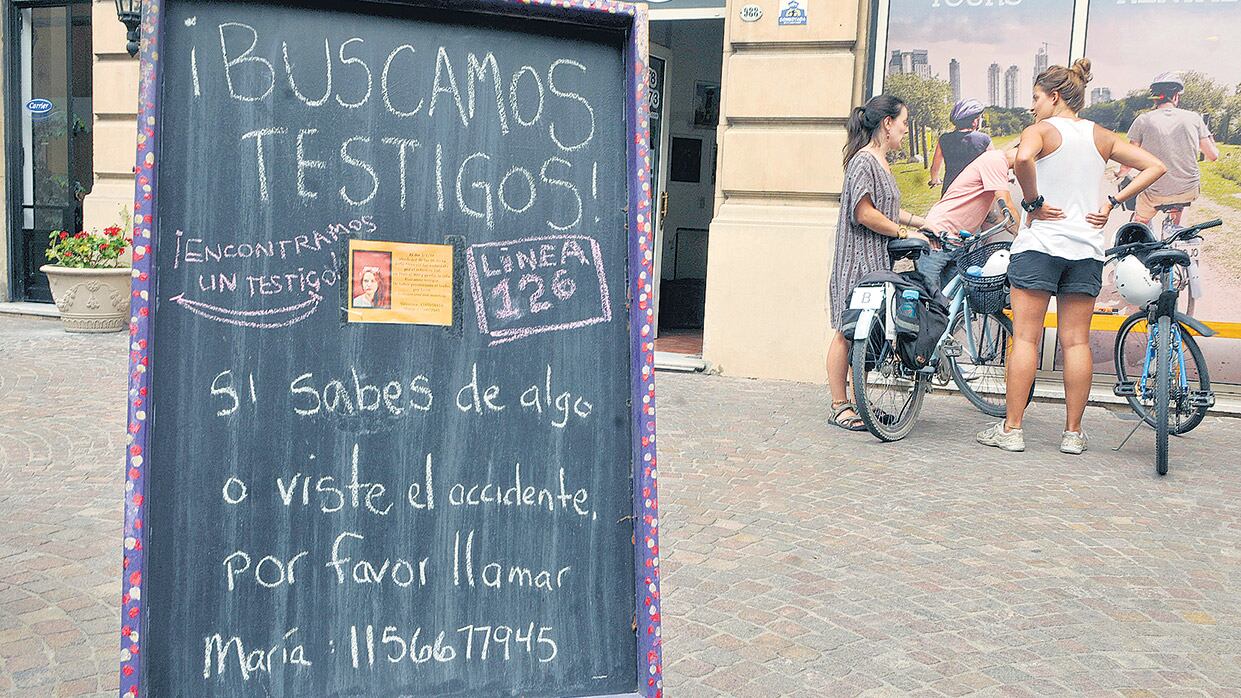 ¡BUSCAMOS
TESTIGOS!
¡ENCONTRAMOS
UN TESTIGO!
LINEA
126
SI sabes de algo
o viste el accidente,
por favor llamar
María: 1156677945
Carrier
988
TOURS
B